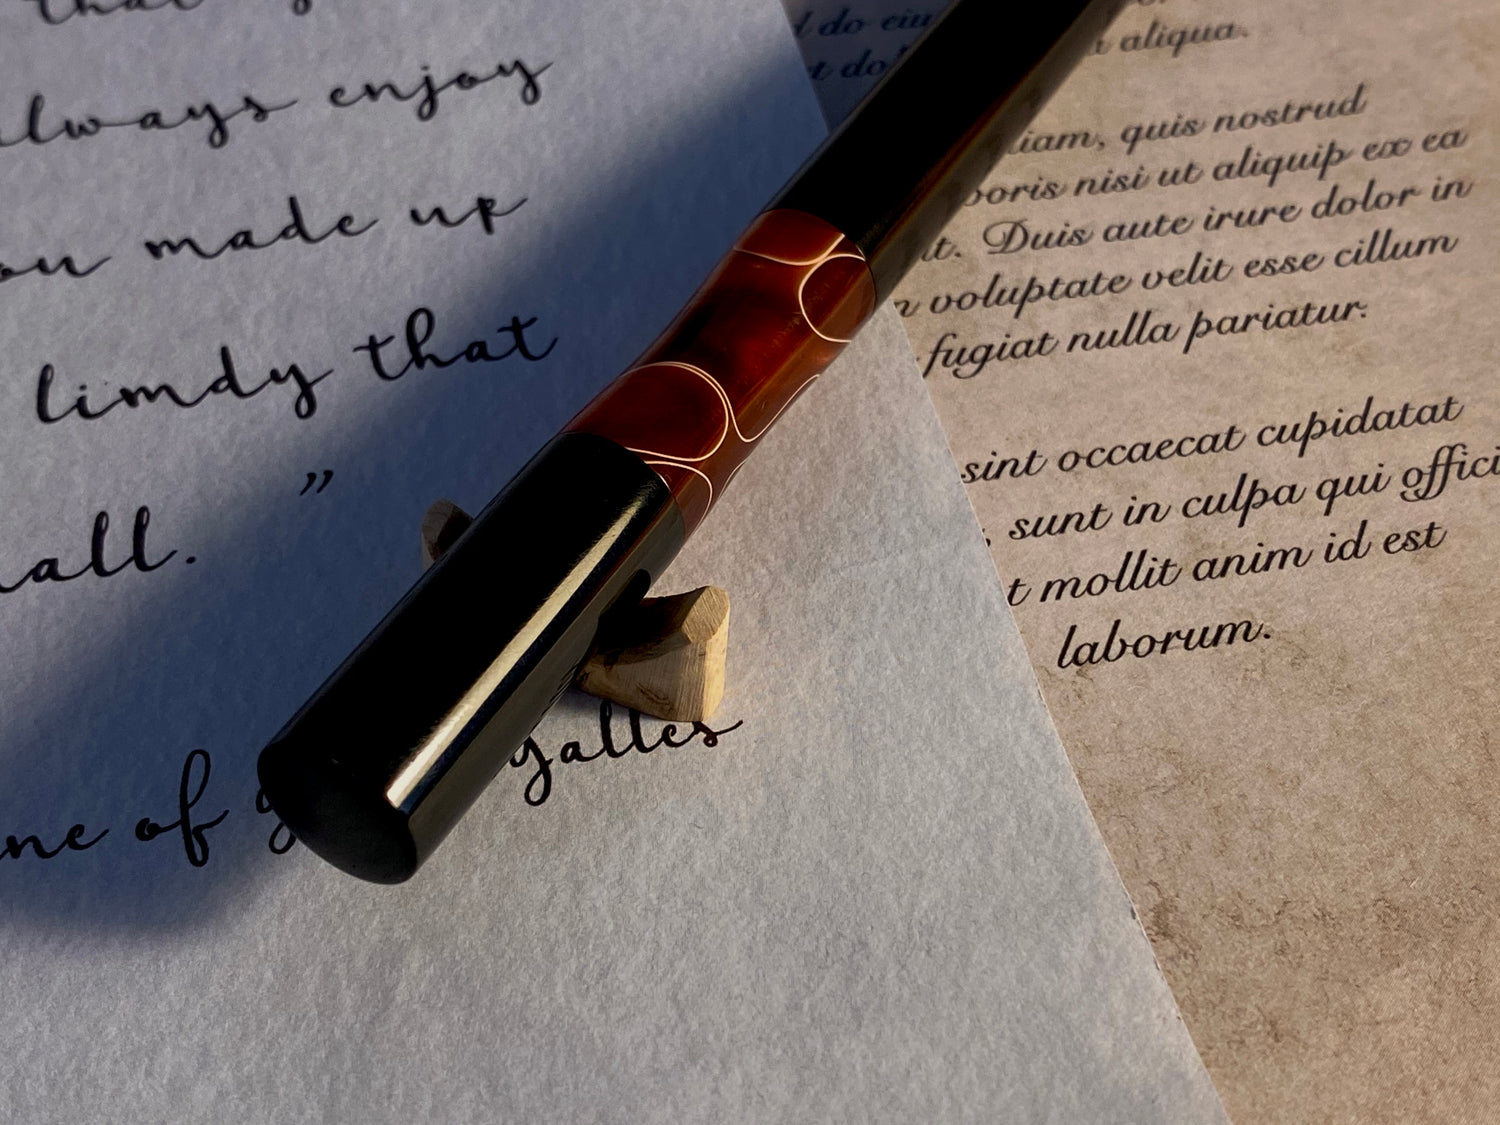 that
always enjoy
made up
limdy that
all. ”
of
galles
do eiu
aliqua.
quis nostrud
nisi ut aliquip ex ea
Duis aute irure dolor in
voluptate velit esse cillum
fugiat nulla pariatur.
sint occaecat cupidatat
, sunt in culpa qui offici
t mollit anim id est
laborum.